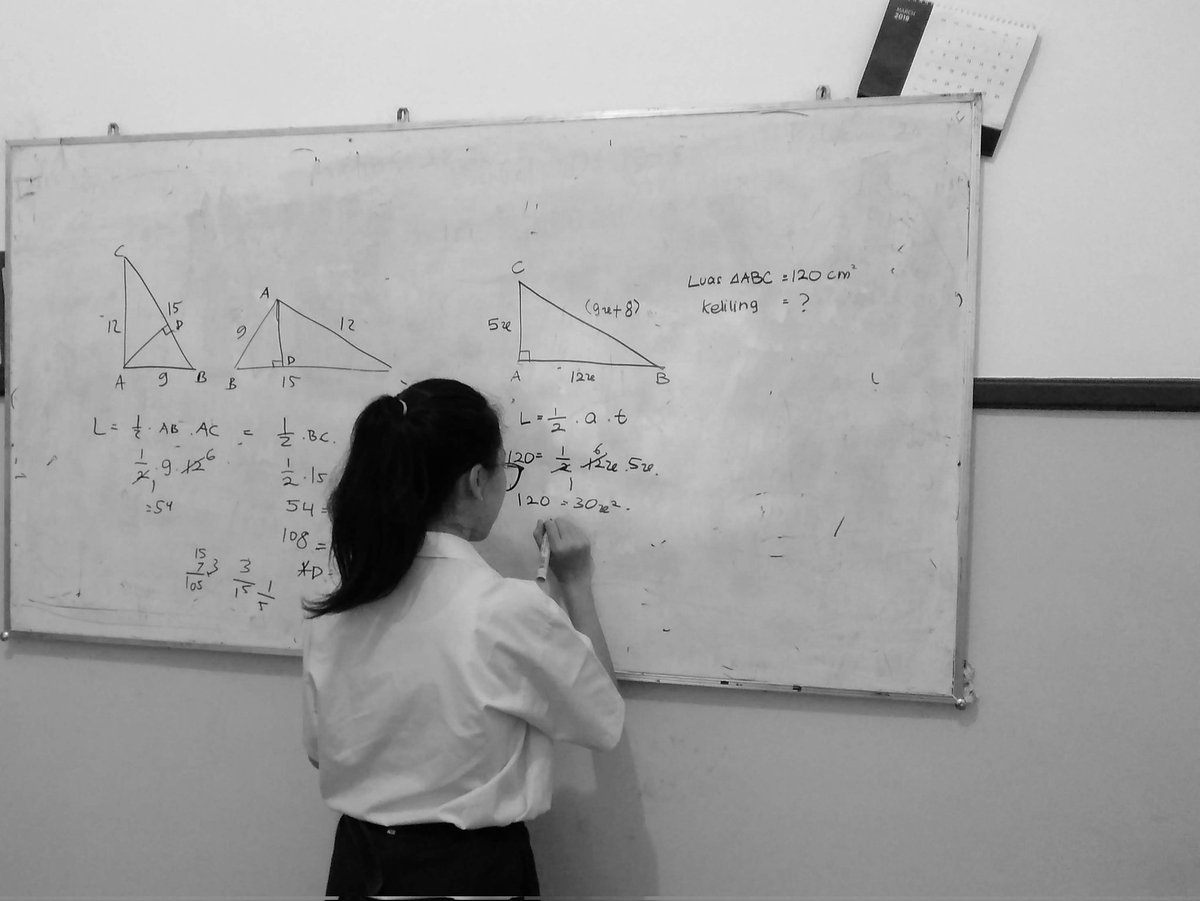 MARCH
2019
C
15
D
12
A 9 B
A
9
12
D
B 15
C
(9x+8)
5x
A 12x B
Luas △ABC = 120 cm²
Keliling = ?
L = 1/2 · AB · AC = 1/2 · BC.
1/2 · 9 · 12 6
1
= 54
1/2 · 15
54 =
108 =
15
7
105
3
3
15
1
5
L = 1/2 · a · t
120 = 1/2 12x · 5x.
6
1
120 = 30x².